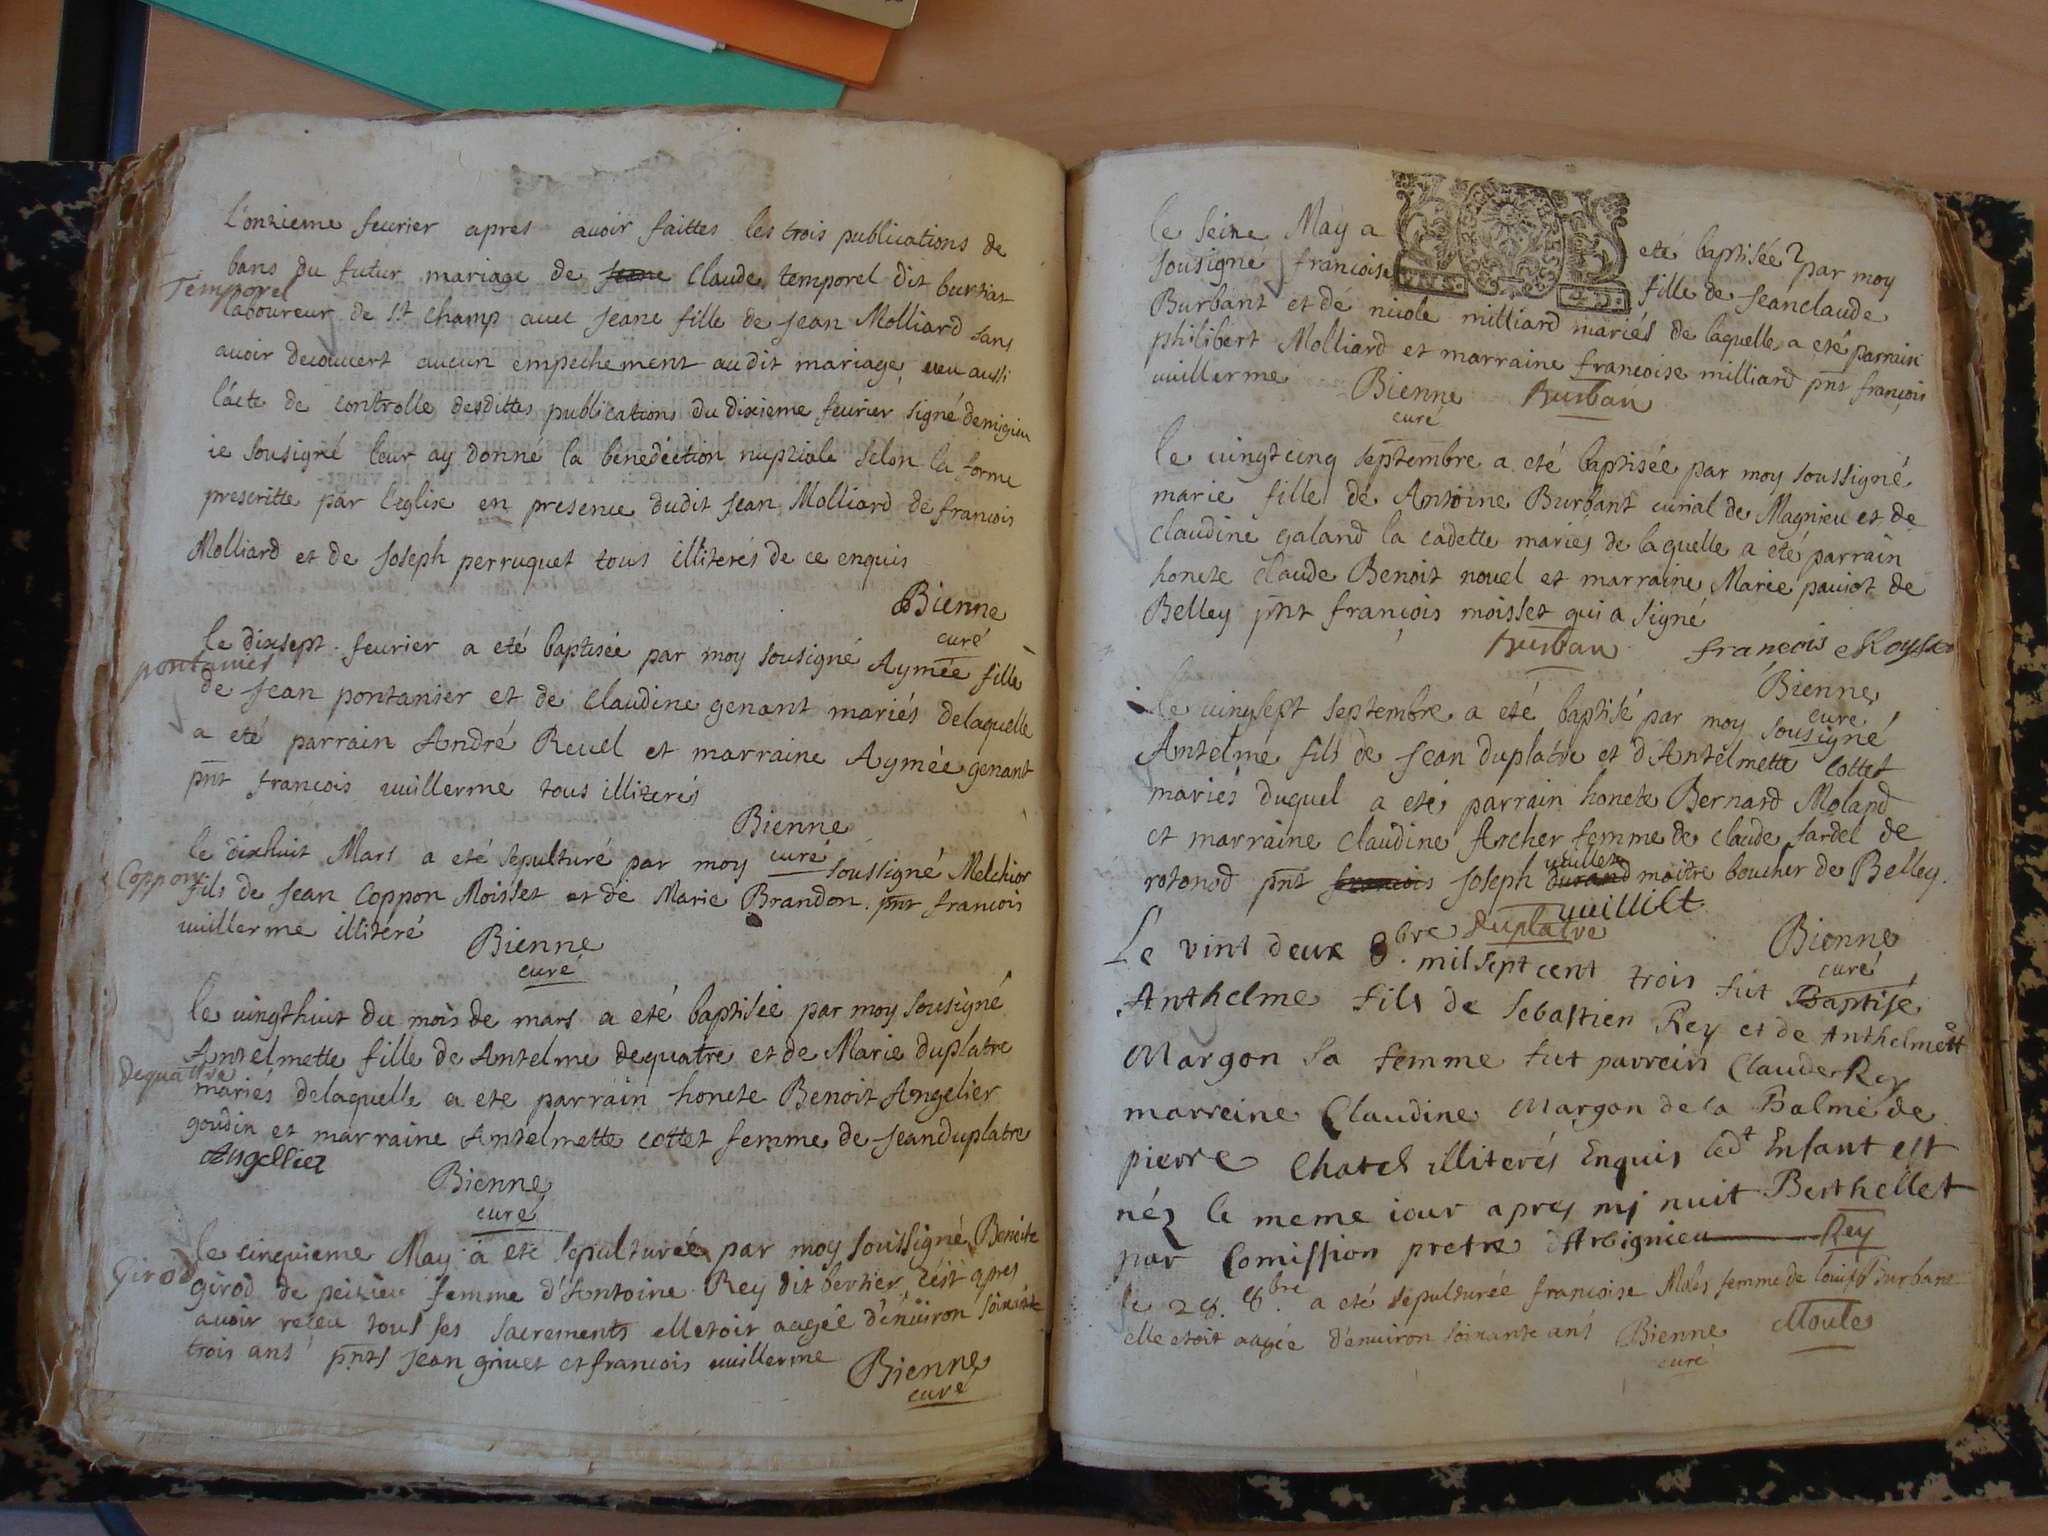 L'onzieme feurier apres avoir faittes les trois publications de
bans du futur mariage de Claude temporel dit
Temporel
laboureur de St champ avec Jeane fille de Jean Molliard sans
avoir decouvert aucun empechement audit mariage veu aussi
l'acte de controlle desdittes publications du dixieme feurier signé demigieu
ie sousigné leur ay donné la benediction nuptiale selon la forme
prescritte par l'eglise en presence dudit Jean Molliard de francois
Molliard et de Joseph perruquet tous illiterés de ce enquis
Bienne
curé
le dixsept feurier a eté baptisée par moy sousigné Aymée fille
pontanier
de Jean pontanier et de Claudine genant mariés delaquelle
a eté parrain André Revel et marraine Aymée genant
pnt françois vuillerme tous illiterés
Bienne
curé
le dixhuit Mars a eté sepulturé par moy soussigné Melchior
Coppon
fils de Jean Coppon Moisset et de Marie Brandon pnt francois
vuillerme illiteré
Bienne
curé
le vingthuit du mois de mars a eté baptisée par moy sousigné
Antelmette fille de Antelme dequatre et de Marie duplatre
dequattre
mariés delaquelle a ete parrain honete Benoit Angelier
goudin et marraine Antelmette cottet femme de Jean duplatre
Angellier
Bienne
curé
le cinquieme May a eté sepulturée par moy soussigné Benoite
Girod
girod de peizieu femme d'Antoine Rey dit bertier apres
avoir receu tous ses sacrements elletoit aagée d'enuiron soixante
trois ans pnts Jean grivet et francois vuillerme
Bienne
curé
le seize May a eté baptisée par moy
sousigne francoise fille de Jeanclaude
Burbant et de nicole milliard mariés de laquelle a eté parrain
philibert Molliard et marraine francoise milliard pnt françois
vuillerme Bienne Burban
curé
le vingtcinq septembre a eté baptisée par moy soussigné
marie fille de Antoine Burbant curial de Magnieu et de
claudine galand la cadette mariés de laquelle a eté parrain
honete Claude Benoit novel et marraine Marie paviot de
Belley pnt françois moisset qui a signé
Burban françois Moysset
Bienne
curé
le vingsept septembre a eté baptisé par moy sousigné
Antelme fils de Jean duplatre et d'Antelmette cottet
mariés duquel a eté parrain honete Bernard Moland
et marraine claudine Archer femme de claude sardet de
rotonod pnt francois Joseph durand vuillet maitre boucher de Belley.
vuillilt
duplatre
Bienne
curé
Le vint deux 8.bre mil sept cent trois fut Baptisé
Anthelme fils de Sebastien Rey et de Anthelmett
Margon sa femme fut parrein Claude Rey
marreine Claudine Margon de la Balme de
pierre Chatel illiterés Enquis led.t Enfant est
néz le meme iour apres mi nuit Berthellet
par Comission pretre d'Arbignieu Rey
le 28. 8.bre a eté sepulturée françoise Moles femme de burbant
elle etoit aagée d'enuiron soixante ans Bienne Moules
curé